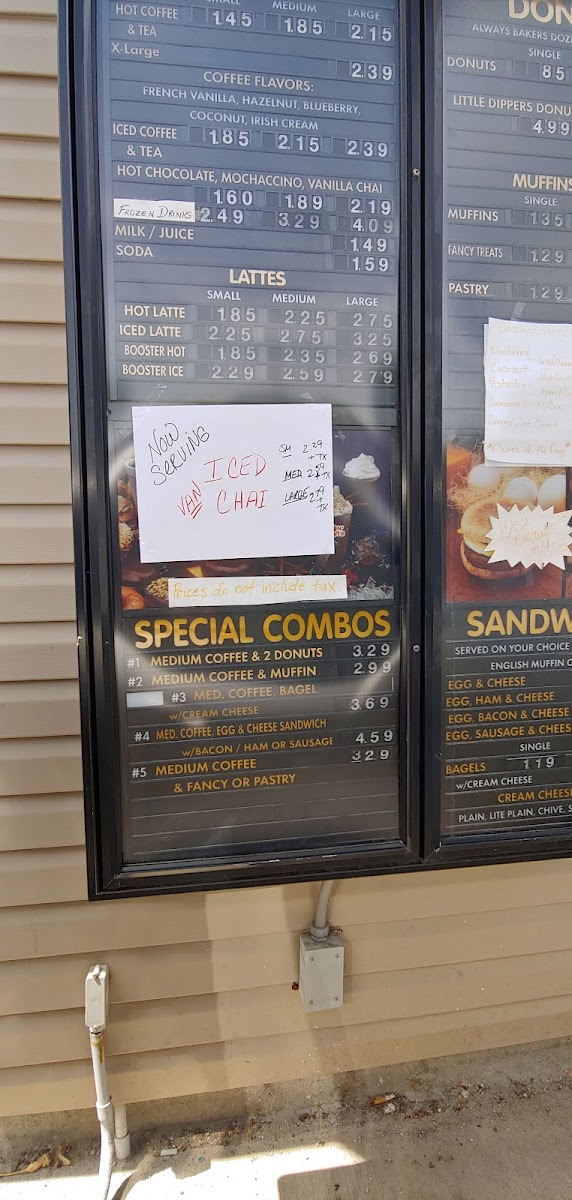 SMALL MEDIUM LARGE
HOT COFFEE 1.45 1.85 2.15
& TEA
X-Large 2.39
COFFEE FLAVORS:
FRENCH VANILLA, HAZELNUT, BLUEBERRY,
COCONUT, IRISH CREAM
ICED COFFEE 1.85 2.15 2.39
& TEA
HOT CHOCOLATE, MOCHACCINO, VANILLA CHAI
1.60 1.89 2.19
FROZEN DRINKS 2.49 3.29 4.09
MILK / JUICE 1.49
SODA 1.59
LATTES
SMALL MEDIUM LARGE
HOT LATTE 1.85 2.25 2.75
ICED LATTE 2.25 2.75 3.25
BOOSTER HOT 1.85 2.35 2.69
BOOSTER ICE 2.29 2.59 2.79
NOW
SERVING
VAN ICED
CHAI
SM 2.29
+ TX
MED 2.59
+ TX
LARGE 2.79
+
TX
Prices do not include tax.
SPECIAL COMBOS
#1 MEDIUM COFFEE & 2 DONUTS 3.29
#2 MEDIUM COFFEE & MUFFIN 2.99
#3 MED. COFFEE, BAGEL
w/CREAM CHEESE 3.69
#4 MED. COFFEE, EGG & CHEESE SANDWICH
w/BACON / HAM OR SAUSAGE 4.59
#5 MEDIUM COFFEE 3.29
& FANCY OR PASTRY
DON
ALWAYS BAKERS DOZ
SINGLE
DONUTS 85
LITTLE DIPPERS DONU
4.99
MUFFINS
SINGLE
MUFFINS 1.35
FANCY TREATS 1.29
PASTRY 1.29
Coconut
Pistachio
SANDW
SERVED ON YOUR CHOICE
ENGLISH MUFFIN O
EGG & CHEESE
EGG, HAM & CHEESE
EGG, BACON & CHEESE
EGG, SAUSAGE & CHEES
SINGLE
BAGELS 1.19
w/CREAM CHEESE
CREAM CHEES
PLAIN, LITE PLAIN, CHIVE, S